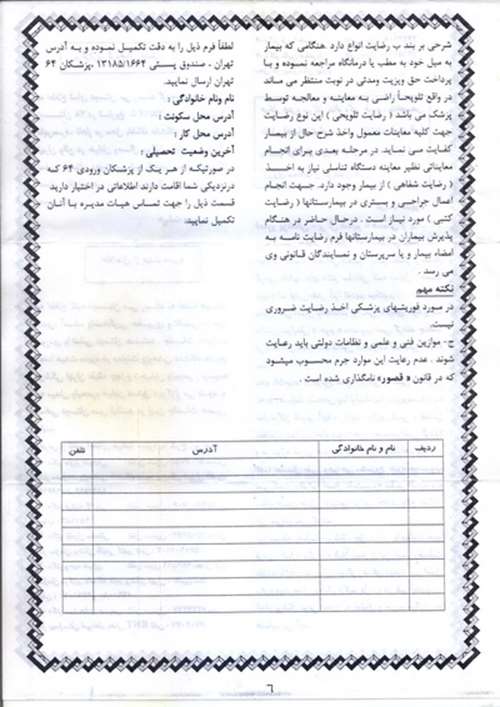 شرحی بر بند ب رضایت انواع دارد. هنگامی که بیمار
به میل خود به مطب یا درمانگاه مراجعه نموده و با
پرداخت حق ویزیت ومدتی در نوبت منتظر می ماند
در واقع تلویحاً راضی بـه معاینـه و معالجـه توسـط
پزشک می باشد ( رضایت تلویحی ) این نوع رضـایت
جهت کلیه معاینات معمول واخذ شرح حال از بیمـار
کفایت مـی نمـاید. در مرحلـه بعـدی بـرای انجـام
معایناتی نظیر معاینه دستگاه تناسلی نیاز به اخـذ
( رضایت شفاهی ) از بیمار وجود دارد. جـهت انجـام
اعمال جراحـی و بستری در بیمارستانها ( رضـایت
کتبی ) مورد نیـاز اسـت . درحـال حـاضر در هنـگام
پذیرش بیماران در بیمارستانها فرم رضایت نامـه بـه
امضاء بیمار و یا سرپرستان و نمـایندگان قـانونی وی
می رسد .
نکته مهم
در مـورد فوریتهای پزشکی اخـذ رضـایت ضروری
نیست.
ج- موازین فنی و علمی و نظامات دولتی باید رعـایت
شوند . عدم رعایت این موارد جرم محسـوب میشـود
که در قانون « قصور» نامگذاری شده است .
لطفاً فرم ذیل را به دقت تکمیـل نمـوده و بـه آدرس
تهران ، صندوق پسـتی ۱۳۱۸۵/۱۶۶۴ ،پزشکان ۶۴
تهران ارسال نمایید.
نام ونام خانوادگی :
آدرس محل سکونت :
آدرس محل کار :
آخرین وضعیت تحصیلی :
در صورتیکـه از هـر یـک از پزشـکان ورودی ۶۴ کـه
درنزدیکی شما اقامت دارند اطلاعاتی در اختیار دارید
قسمت ذیل را جهت تمـاس هیـات مدیـره بـا آنـان
تکمیل نمایید.
ردیف نام و نام خانوادگی آدرس تلفن
۶